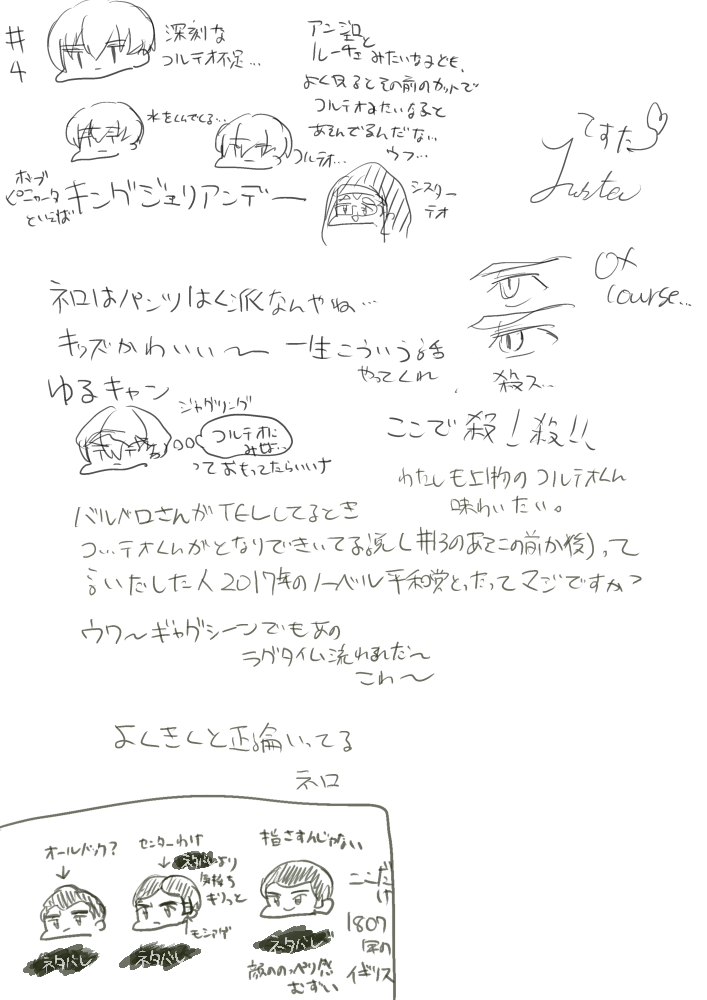 #4
深刻な
コルテオ不足…
アンジェロと
ルーチェ みたいな子ども、
よく見るとその前のカットで
コルテオみたいな子と
あそんでるんだな…
ウフ…
水をくんでくる…
コルテオ…
てすた
Testa
ホープ
ピニャータ
といえば
キングジェリアンデー
シスター
テオ
Of
course…
ネロはパンツはく派なんやね…
キッズかわいい〜
一生こういう話
やってくれ
殺ス…
ゆるキャン
ジャグリング
コルテオに
みせ…
っておもってたらいいな
ここで殺!殺!!
わたしも上物のコルテオくん
味わいたい。
バルベロさんがTELしてるとき
コ…テオくんがとなりできいてる説(#3のあそこの前か後)って
言いだした人2017年のノーベル平和賞とったってマジですか?
ウワ〜ギャグシーンでもあの
ラグタイム流れるんだ〜
これ〜
よくきくと正論いってる
ネロ
オールバック?
センターわけ
ネタバレより
気持ち
ギリっと
モミアゲ
指さすんじゃない
ここだけ
1807
年の
イギリス
ネタバレ
ネタバレ
ネタバレ
顔ののっぺり感
むずい